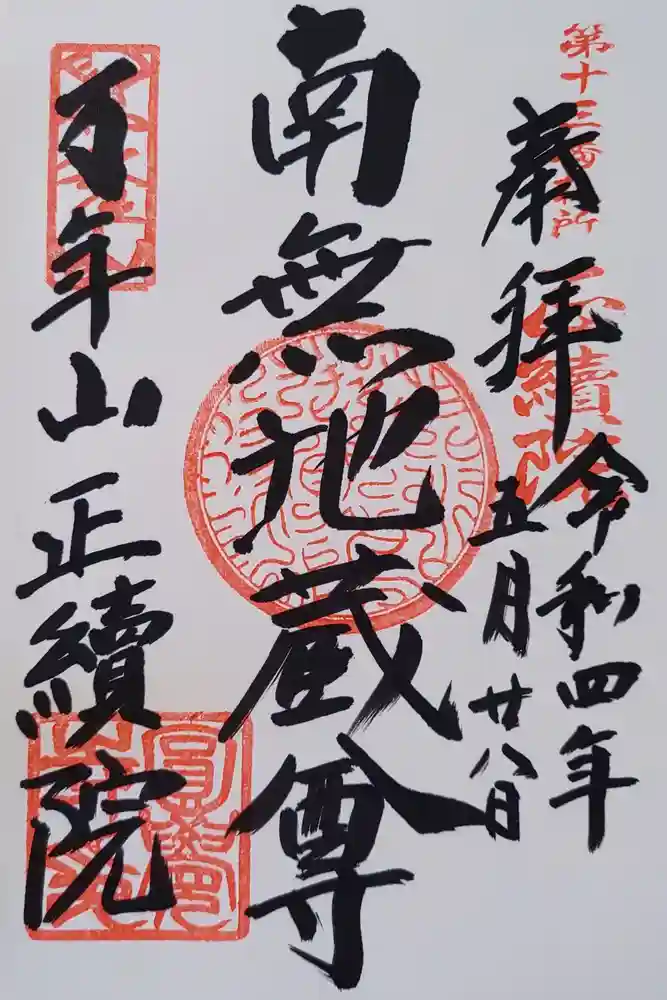 第十三番札所
正續院
奉拝
令和四年
五月廿八日
南無地蔵尊
万年山正續院